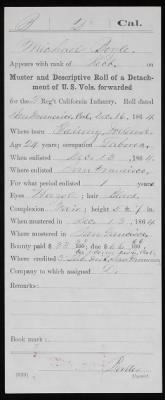 B 2 Cal.
Michael Doyle
Appears with rank of Rect. on
Muster and Descriptive Roll of a Detach-
ment of U. S. Vols. forwarded
for the 2 Reg't California Infantry. Roll dated
San Francisco, Cal., Dec. 16, 1864
Where born Galway, Ireland
Age 24 years; occupation Laborer
When enlisted Dec. 13, 1864
Where enlisted San Francisco
For what period enlisted 1 years
Eyes Hazel; hair Dark
Complexion Fair; height 5 ft. 7 in.
When mustered in Dec. 13, 1864
Where mustered in San Francisco
Bounty paid $ 33 100; due $ 66 100
Where credited
Company to which assigned
Remarks:
Book mark:
Copyist.